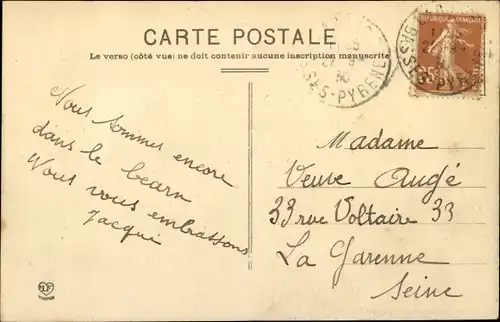 CARTE POSTALE
Le verso (côté vue) ne doit contenir aucune inscription manuscrite
RÉPUBLIQUE FRANÇAISE
SES-PYRÉNÉES
Nous sommes encore
dans le bearn
Nous vous embrassons
Jacqui
Madame
Veuve Augé
33 rue Voltaire 33
La Garenne
Seine